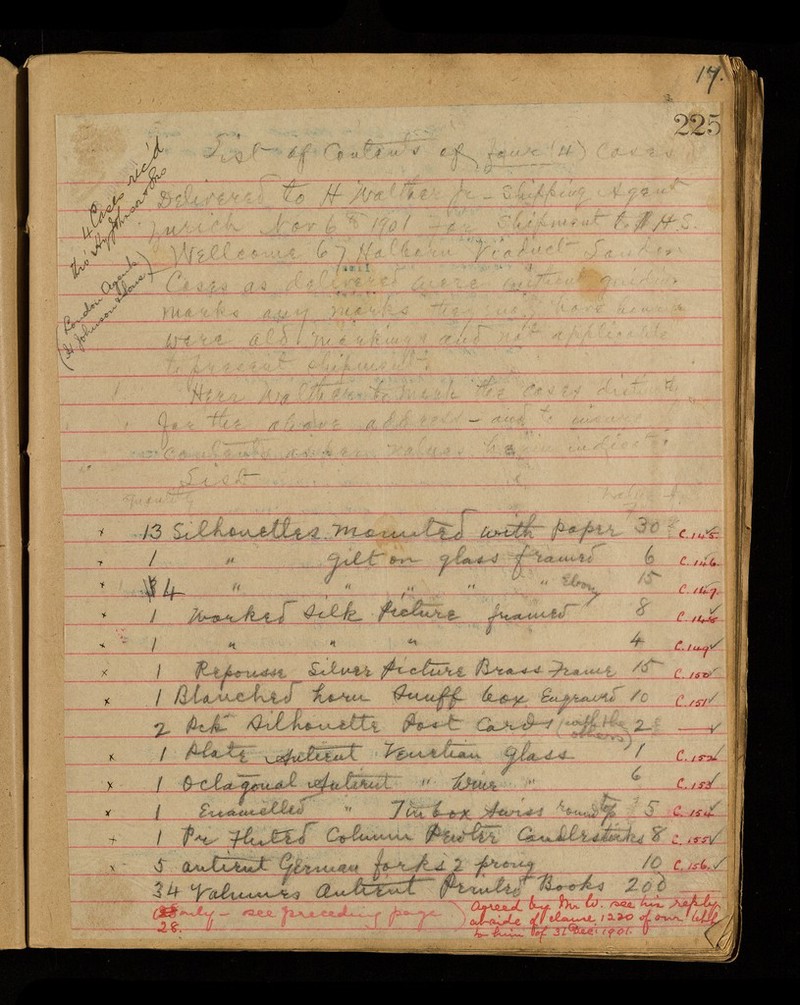 17.
225
4 Cases rec'd
this
(London Agents
Johnson & Sons)
List of Contents of four (4) Cases
Delivered to H Walther Jr - Shipping Agent
Zurich Nov 6th 1901 For Shipment to H.S.
Wellcome 67 Holborn Viaduct London
Cases as delivered were without guiding
marks any marks they may have
were old markings and not applicable
to present shipment.
Herr Walther to mark the cases
for the above address - and to
contents as per values herein
List
Quantity Value
× 13 Silhouettes mounted with paper 30 C.145 ✓
× 1 " gilt on glass framed 6 C.146 ✓
× 4 " " " " " Ebony 15 C.147 ✓
× 1 Worked Silk Picture framed 8 C.148 ✓
× 1 " " " 4 C.149 ✓
× 1 Repousse Silver Picture Brass Frame 15 C.150 ✓
× 1 Blanched horn Snuff box Engraved 10 C.151 ✓
2 Pck Silhouette Post Cards (with the others) 2 — ✓
× 1 Plate Antient Venetian glass 1 C.152 ✓
× 1 Octagonal Antient " Wine " 6 C.153 ✓
× 1 Enamelled " Tin box Swiss round top 5 C.154 ✓
+ 1 Pr Fluted Column Pewter Candlesticks 8 C.155 ✓
× 5 antient German forks 2 prong 10 C.156. ✓
34 Volumes Antient Printed Books 200
only - see preceding page) Agreed by Mr W. see his reply
28. aside of clause 1220 of our
to him of 31 Dec. 1901.